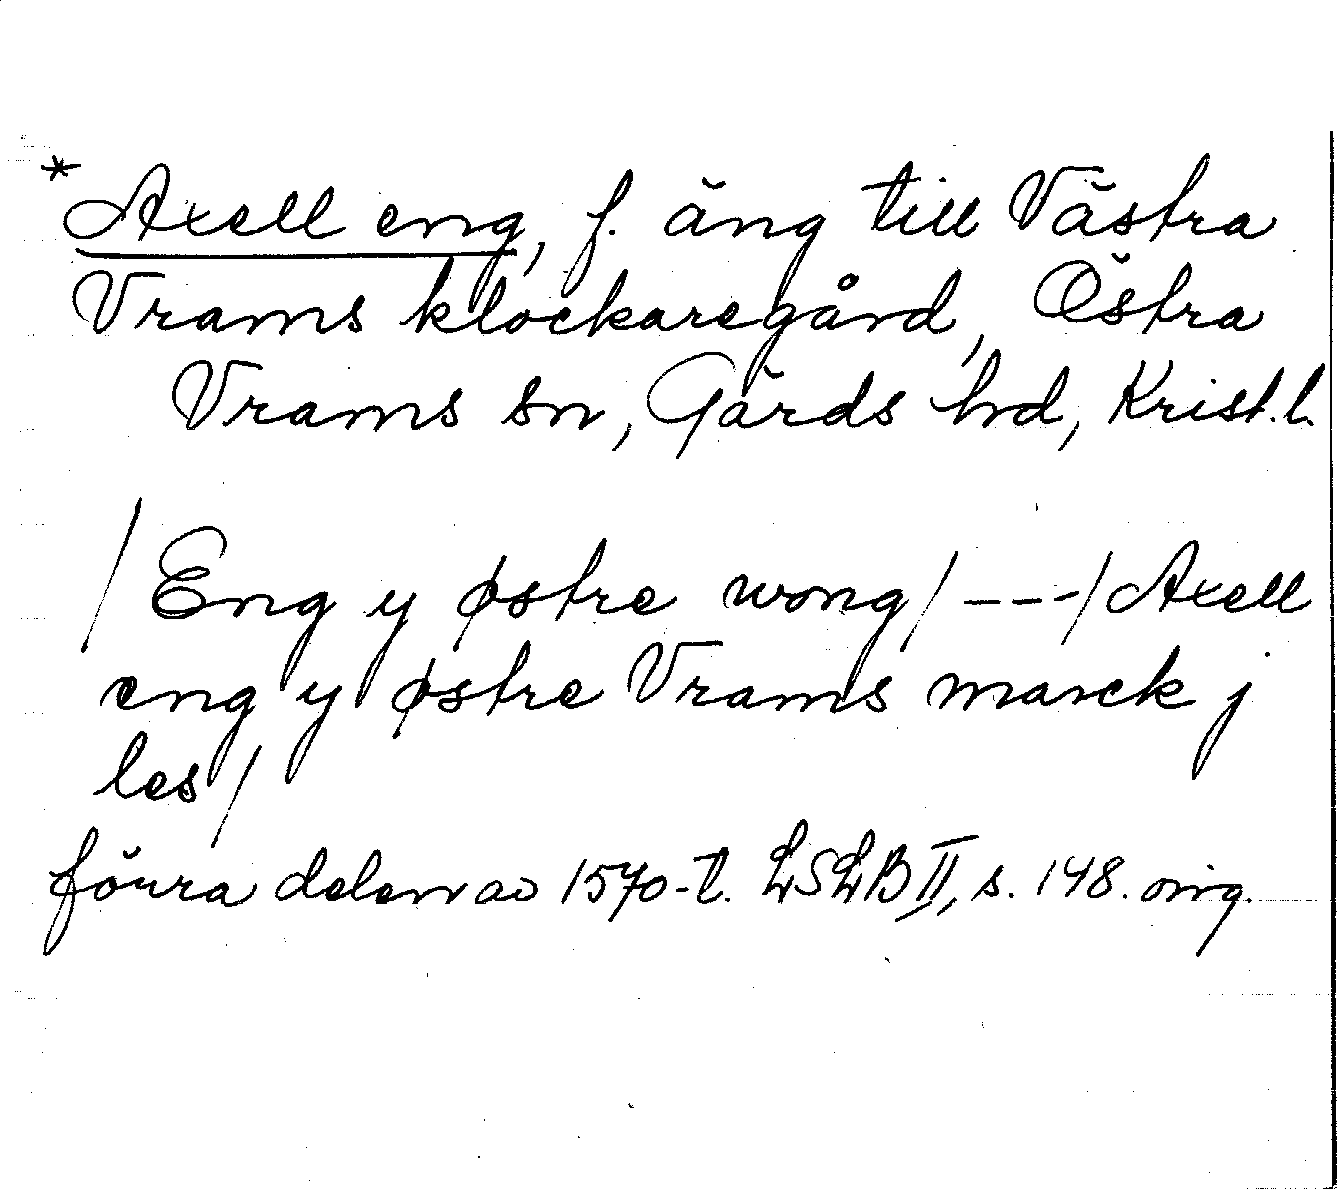 *Axell eng, f. äng till Västra
Vrams klockaregård, Östra
Vrams sn, Gärds hd, Krist.l.
/Eng y østre wong/---/Axell
eng y østre Vrams marck j
les/
förra delen av 1570-t. LSLB II, s. 148. orig.